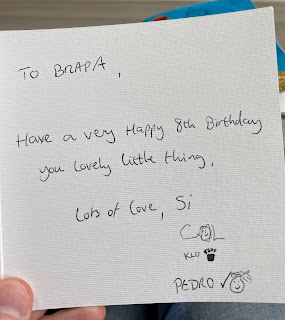 TO BRAPA,
Have a very Happy 8th Birthday
you lovely little thing.
Lots of love, Si
COL
KLO
PEDRO